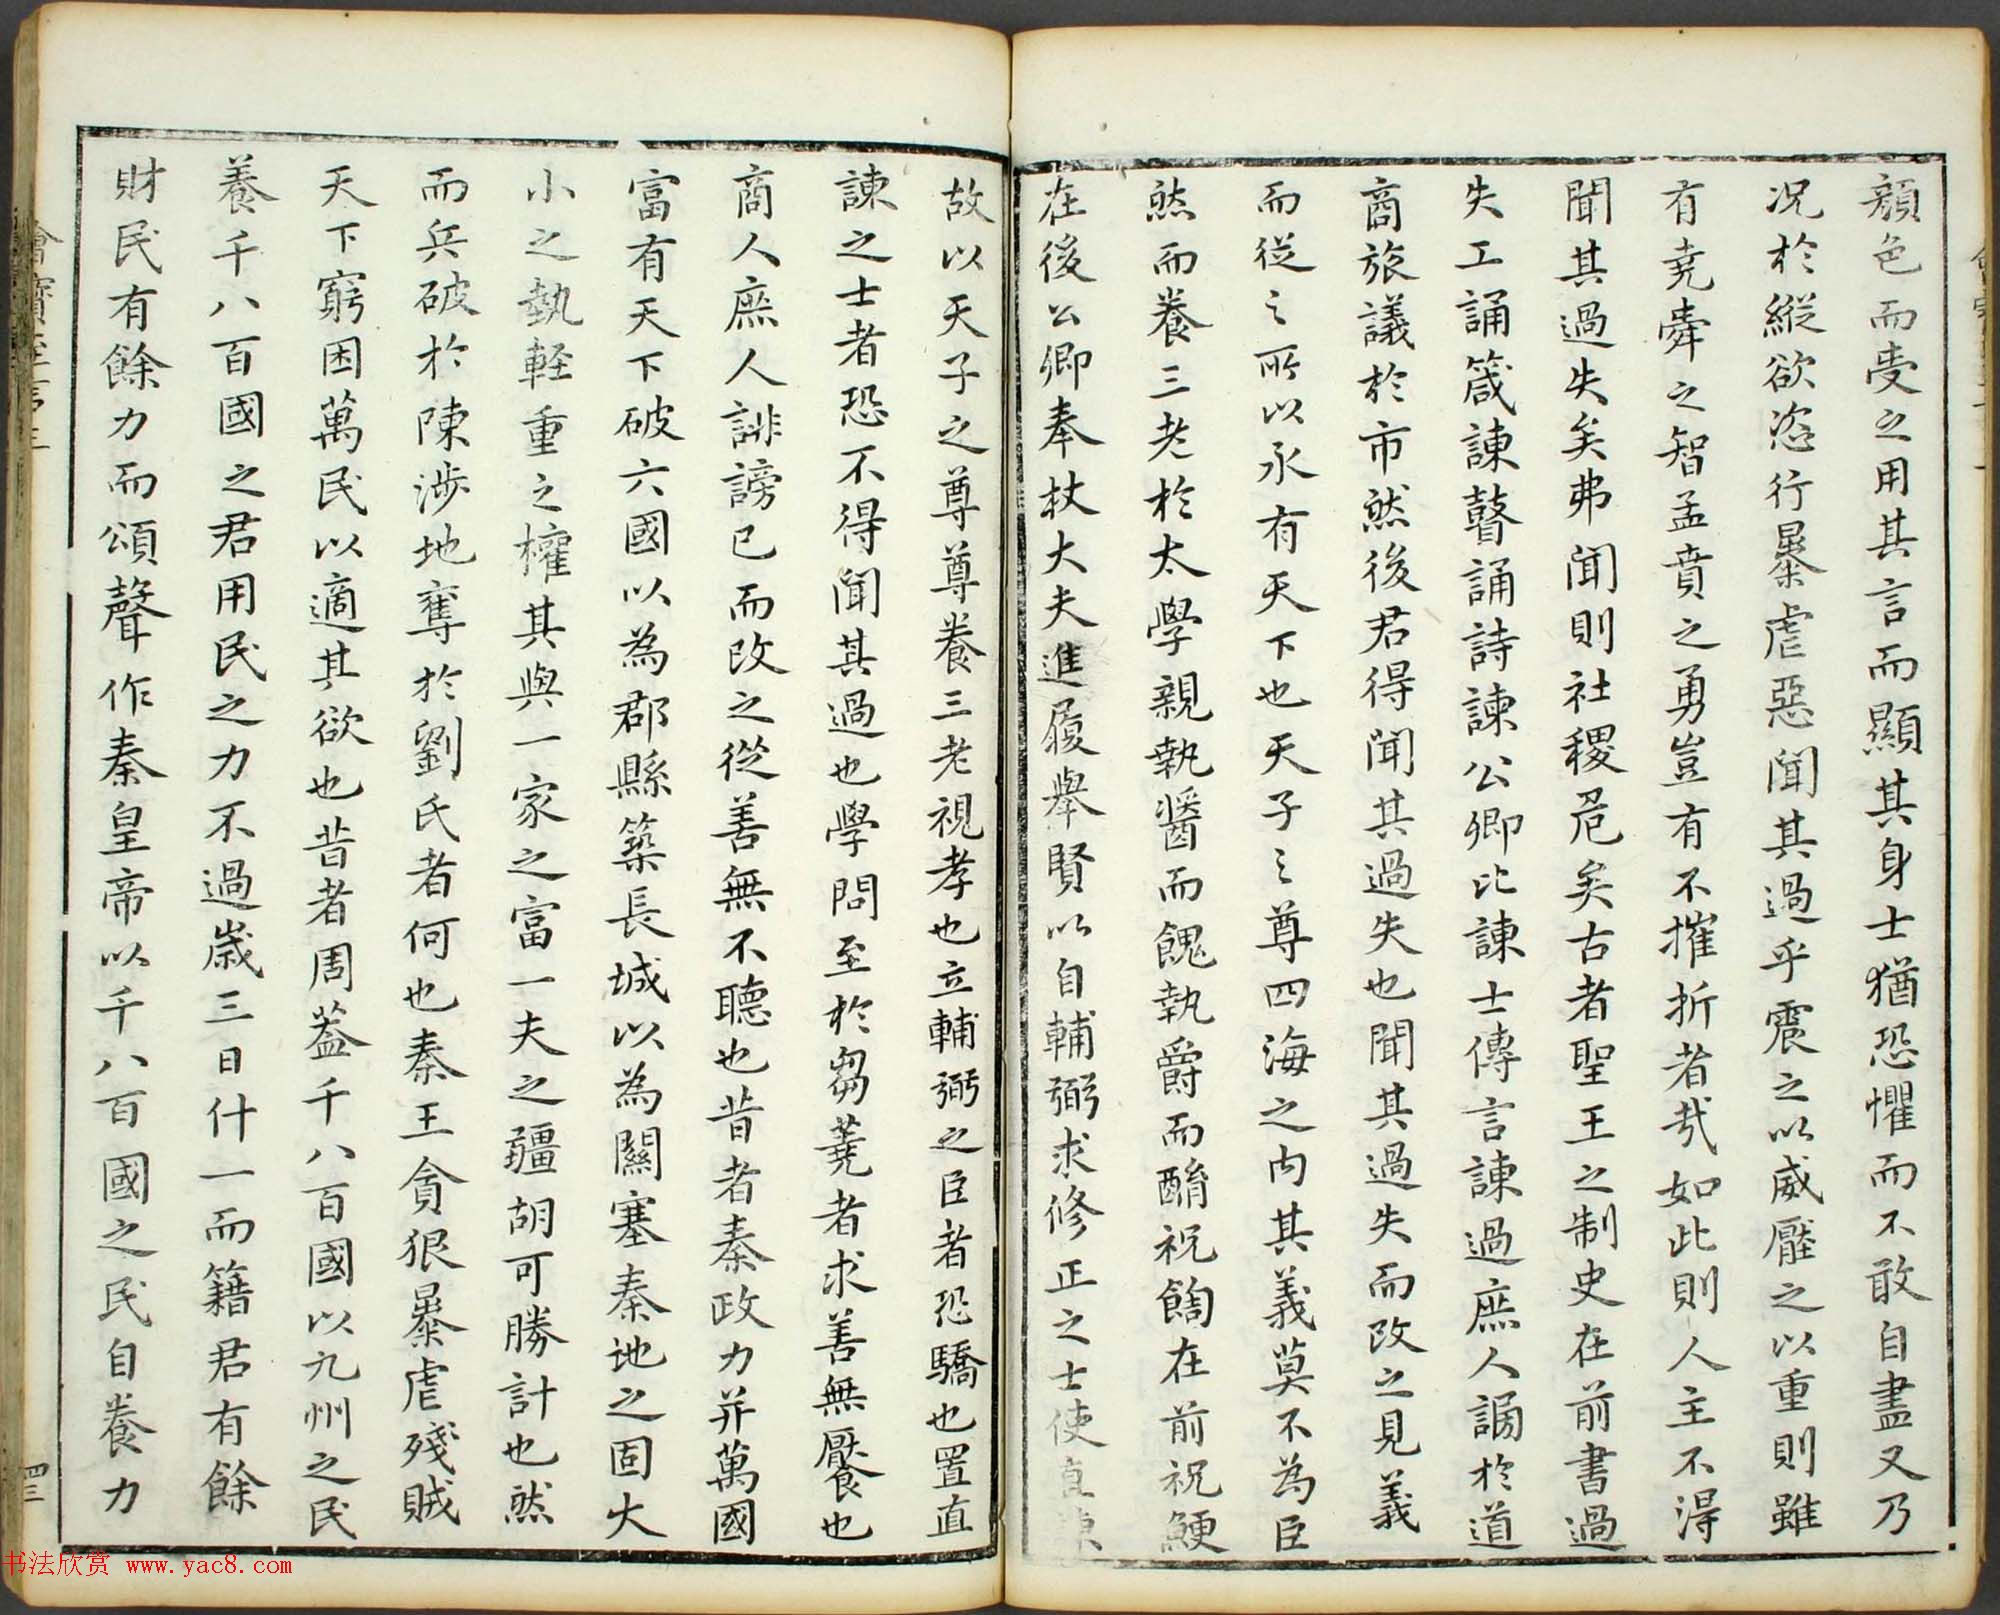 顔色而受之用其言而顯其身士猶恐懼而不敢自盡又乃
况於縱欲恣行暴虐惡聞其過乎震之以威壓之以重則雖
有堯舜之智孟賁之勇豈有不摧折者哉如此則人主不得
聞其過失矣弗聞則社稷危矣古者聖王之制史在前書過
失工誦箴諫瞽誦詩諫公卿比諫士傳言諫過庶人謗於道
商旅議於市然後君得聞其過失也聞其過失而改之見義
而従之所以永有天下也天子之尊四海之内其義莫不為臣
然而養三老於太學親執醬而餽執爵而酳祝餶在前祝鯁
在後公卿奉杖大夫進履舉賢以自輔弼求修正之士使直諫
故以天子之尊尊養三老視孝也立輔弼之臣者恐驕也置直
諫之士者恐不得聞其過也學問至於芻蕘者求善無饜也
商人庶人誹謗己而改之從善無不聽也昔者秦政力并萬國
富有天下破六國以為郡縣築長城以為關塞秦地之固大
小之埶軽重之權其與一家之富一夫之彊胡可勝計也然
而兵破於陳涉地奪於劉氏者何也秦王貪狠暴虐殘賊
天下窮困萬民以適其欲也昔者周葢千八百國以九州之民
養千八百國之君用民之力不過歲三日什一而籍君有餘
財民有餘力而頌聲作秦皇帝以千八百國之民自養力
四三
书法欣赏 www.yac8.com